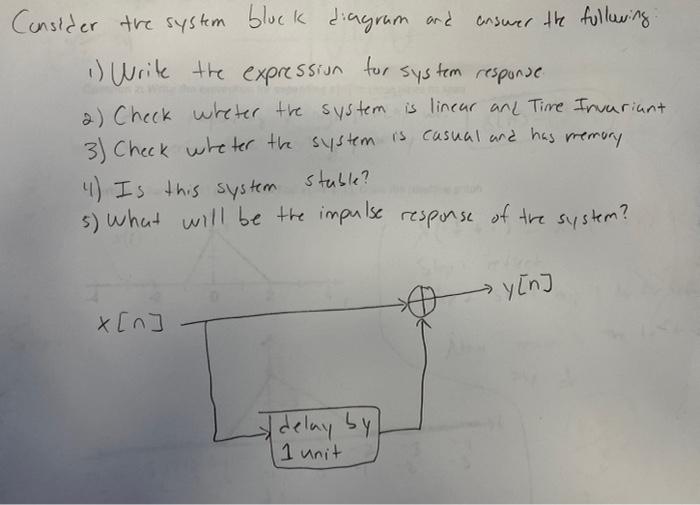 Consider the system block diagram and answer the following:
1) Write the expression for system response.
2) Check wheter the system is linear and Time Invariant
3) Check wheter the system is casual and has memory
4) Is this system stable?
5) What will be the impulse response of the system?
x[n]
y[n]
delay by
1 unit